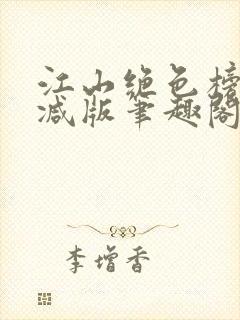 江山绝色榜
减版笔趣阁
李增香